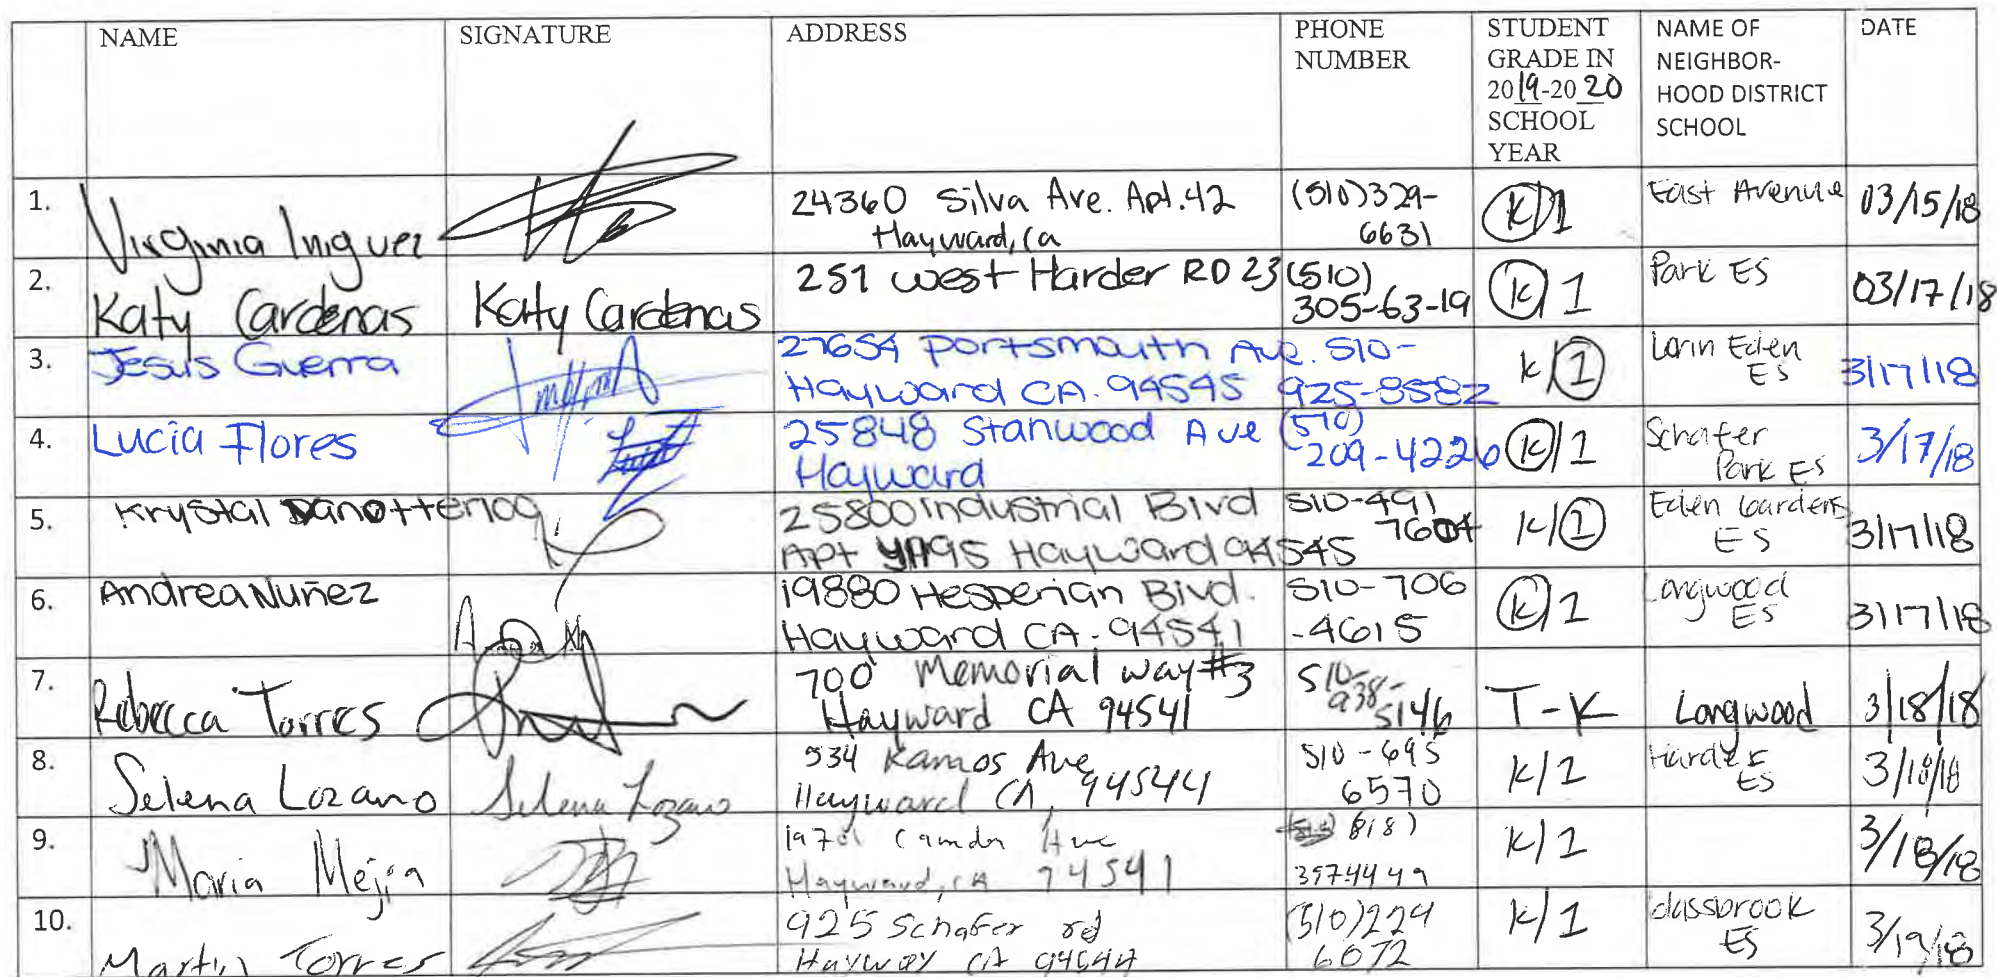 NAME SIGNATURE ADDRESS PHONE NUMBER STUDENT GRADE IN 2019-2020 SCHOOL YEAR NAME OF NEIGHBOR-HOOD DISTRICT SCHOOL DATE
1. Virginia Iniguez 24360 Silva Ave. Apt.42 (510)329-
Hayward, Ca 6631 K/1 East Avenue 03/15/18
2. Katy Cardenas Katy Cardenas 251 west Harder RD 23 (510)
305-63-19 K/1 Park ES 03/17/18
3. Jesus Guerra 27654 Portsmouth Ave. 510-
Hayward CA. 94545 925-8582 K/1 Lorin Eden ES 3/17/18
4. Lucia Flores 25848 Stanwood Ave (510)
Hayward 209-4226 K/1 Schafer Park ES 3/17/18
5. Krystal 25800 Industrial Blvd 510-491
Apt Hayward 94545 7604 K/1 Eden Gardens ES 3/17/18
6. Andrea Nuñez 19880 Hesperian Blvd. 510-706
Hayward CA. 94541 -4615 K/1 Longwood ES 3/17/18
7. Rebecca Torres 700 Memorial way #3 510-
Hayward CA 94541 938-5146 T-K Longwood 3/18/18
8. Selena Lozano Selena Lozano 534 Ramos Ave 510-695
Hayward CA, 94544 6570 K/1 Harder ES 3/18/18
9. Maria Mejia Ave (818)
Hayward, CA 94541 3974449 K/1 3/18/18
10. Martin Torres 925 Schafer rd (510)224
CA 6072 K/1 Glassbrook ES 3/19/18